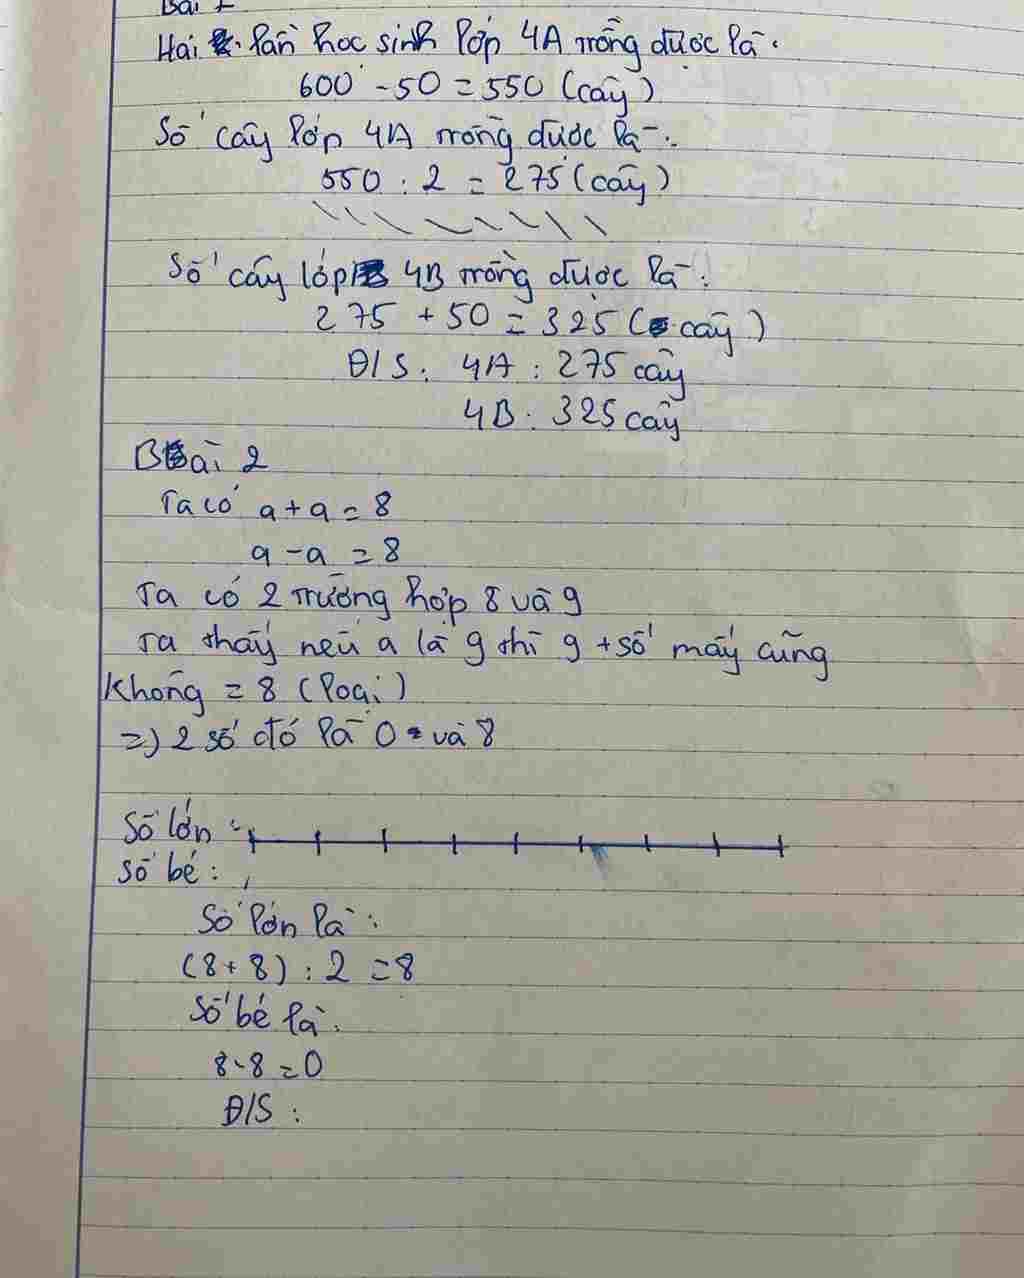 Bài 1
Hai lần học sinh lớp 4A trồng được là:
600 - 50 = 550 (cây)
Số cây lớp 4A trồng được là:
550 : 2 = 275 (cây)
Số cây lớp 4B trồng được là:
275 + 50 = 325 (cây)
Đ/S: 4A : 275 cây
4B : 325 cây
Bài 2
Ta có a + a = 8
a - a = 8
Ta có 2 trường hợp 8 và 9
Ta thấy nếu a là 9 thì 9 + số mấy cũng
không = 8 (loại)
=> 2 số đó là 0 và 8
Số lớn :
Số bé :
Số lớn là :
(8 + 8) : 2 = 8
Số bé là :
8 - 8 = 0
Đ/S :